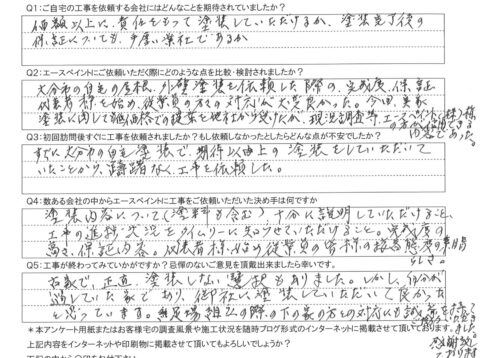 Q1:ご自宅の工事を依頼する会社にはどんなことを期待されていましたか?
価額以上に、責任をもって塗装していただけるか、塗装完了後の
保証についても、手厚い業社であるか
Q2:エースペイントにご依頼いただく際にどのような点を比較・検討されましたか?
大分市の自宅の屋根、外壁塗装を依頼した際の、完成度、保証
代表者様を始め、従業員の方々の対応が大変良かった。今回、実家
塗装に関しても価格での提案を他社から受けたが、現況調査等、エースペイント(様)
の方が信頼できる
内容であった。
Q3:初回訪問後すぐに工事を依頼されましたか?もし依頼しなかったとしたらどんな点が不安でしたか?
すでに大分市の自宅塗装で、期待以上の塗装をしていただいて
いたことから、躊躇なく工事を依頼した。
Q4:数ある会社の中からエースペイントに工事をご依頼いただいた決め手は何ですか
塗装内容について(塗料も含む)十分に説明していただけること、
工事の進捗状況をタイムリーに知らせていただけること。完成度の
高さ、保証内容。代表者様、始め従業員の皆様の接客態度の素晴
らしさ。
Q5:工事が終わってみていかがですか?忌憚のないご意見を頂戴出来ましたら幸いです。
古家で、正直、塗装しない選択もありました。しかし、自分が
過していた家であり、御社に塗装していただいて良かった
と思っています。足場組立の際の下の家の方との対応にも誠意を持って
していただきました。
感謝致
しております
*本アンケート用紙またはお客様宅の調査風景や施工状況を随時ブログ形式のインターネットに掲載させて頂いております。
上記内容をインターネットや印刷物に掲載させて頂いてもよろしいでしょうか?